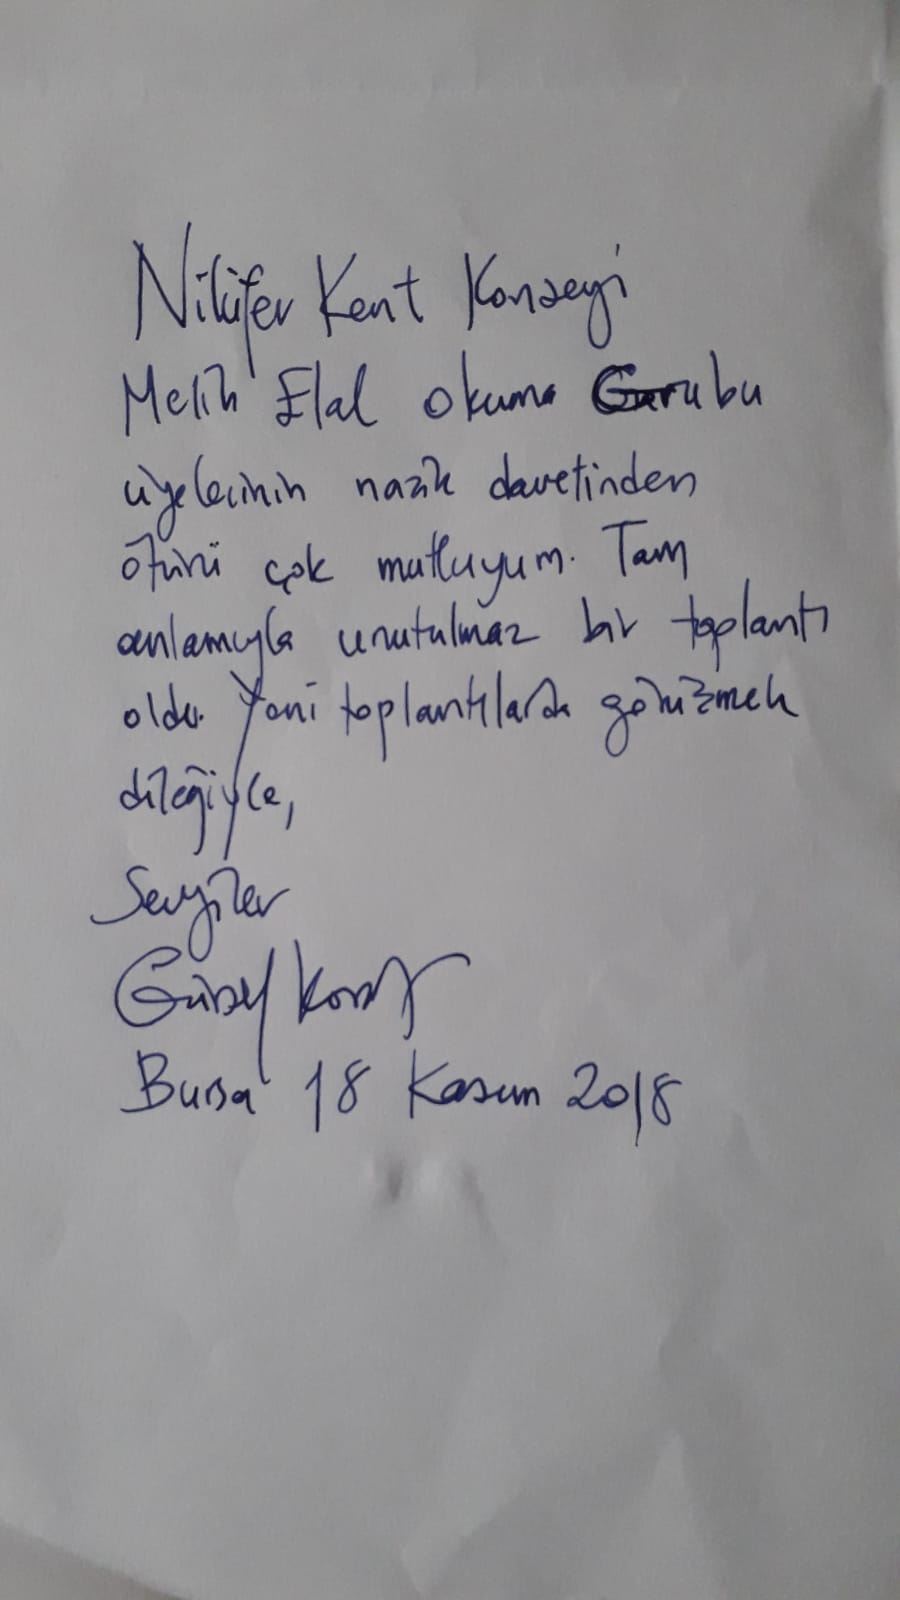 Nilüfer Kent Konseyi
Melih Elal okuma Gurubu
üyelerinin nazik davetinden
ötürü çok mutluyum. Tam
anlamıyla unutulmaz bir toplantı
oldu. Yeni toplantılarda görüşmek
dileğiyle,
Sevgiler
Gürsel Korat
Bursa 18 Kasım 2018